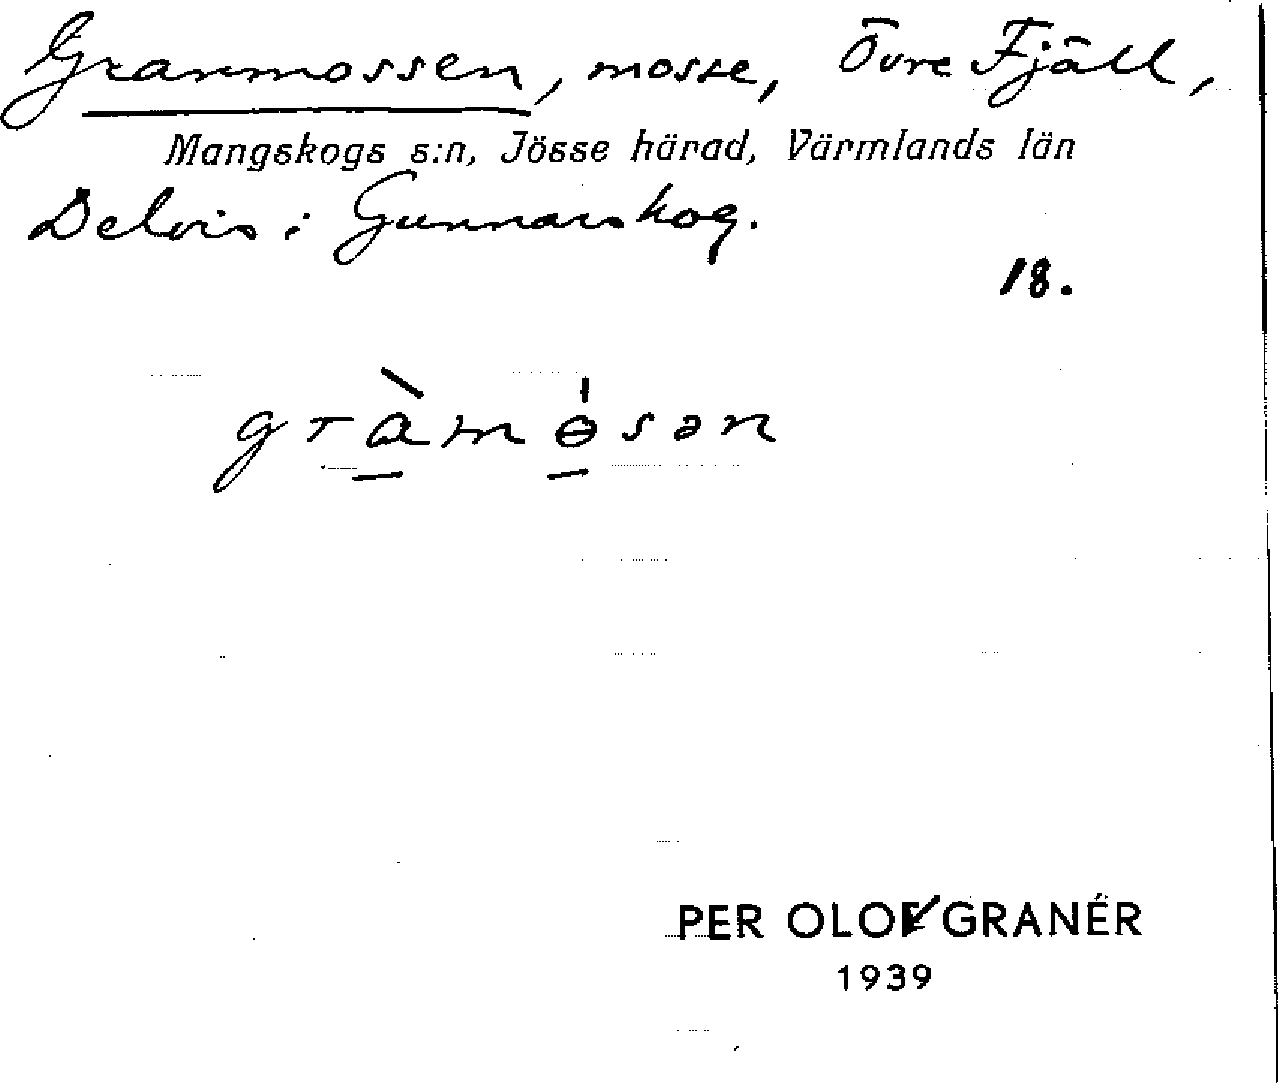 Granmossen, mosse, Övre Fjäll,
Mangskogs s:n, Jösse härad, Värmlands län
Delvis i Gunnarskog.
18.
gràmɵ́sən
PER OLOF GRANÉR
1939